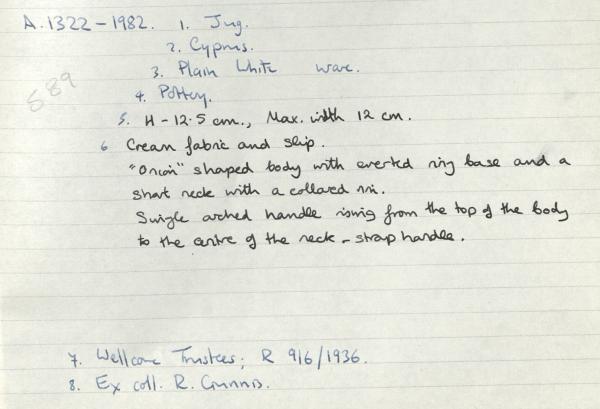 A.1322-1982. 1. Jug.
2. Cyprus.
3. Plain White ware.
589
4. Pottery.
5. H - 12.5 cm., Max. width 12 cm.
6 Cream fabric and slip.
"Onion" shaped body with everted ring base and a
short neck with a collared rim.
Single arched handle rising from the top of the body
to the centre of the neck - strap handle.
7. Wellcome Trustees; R 916/1936.
8. Ex coll. R. Gunnis.